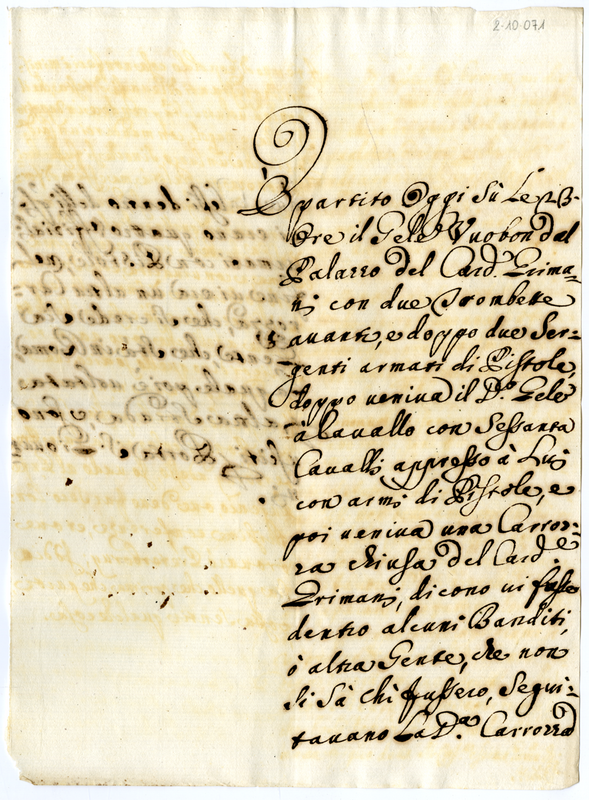 2-10-071
È partito Oggi sù Le 22
Ore il Gēle Vuobon dal
Palazzo del Card. Grima-
ni con due Trombette
auanti, e doppo due Ser=
genti armati di Pistole,
doppo ueniua il D.º Gēle
à Cauallo con Sessanta
Caualli appresso à Lui
con armi di Pistole, e
poi ueniua una Carroz-
za chiusa del Card.e
Grimani, dicono ui fusse
dentro alcuni Banditi,
ò altra Gente, che non
si sà chi fussero, Segui=
tauano La D.a Carrozza